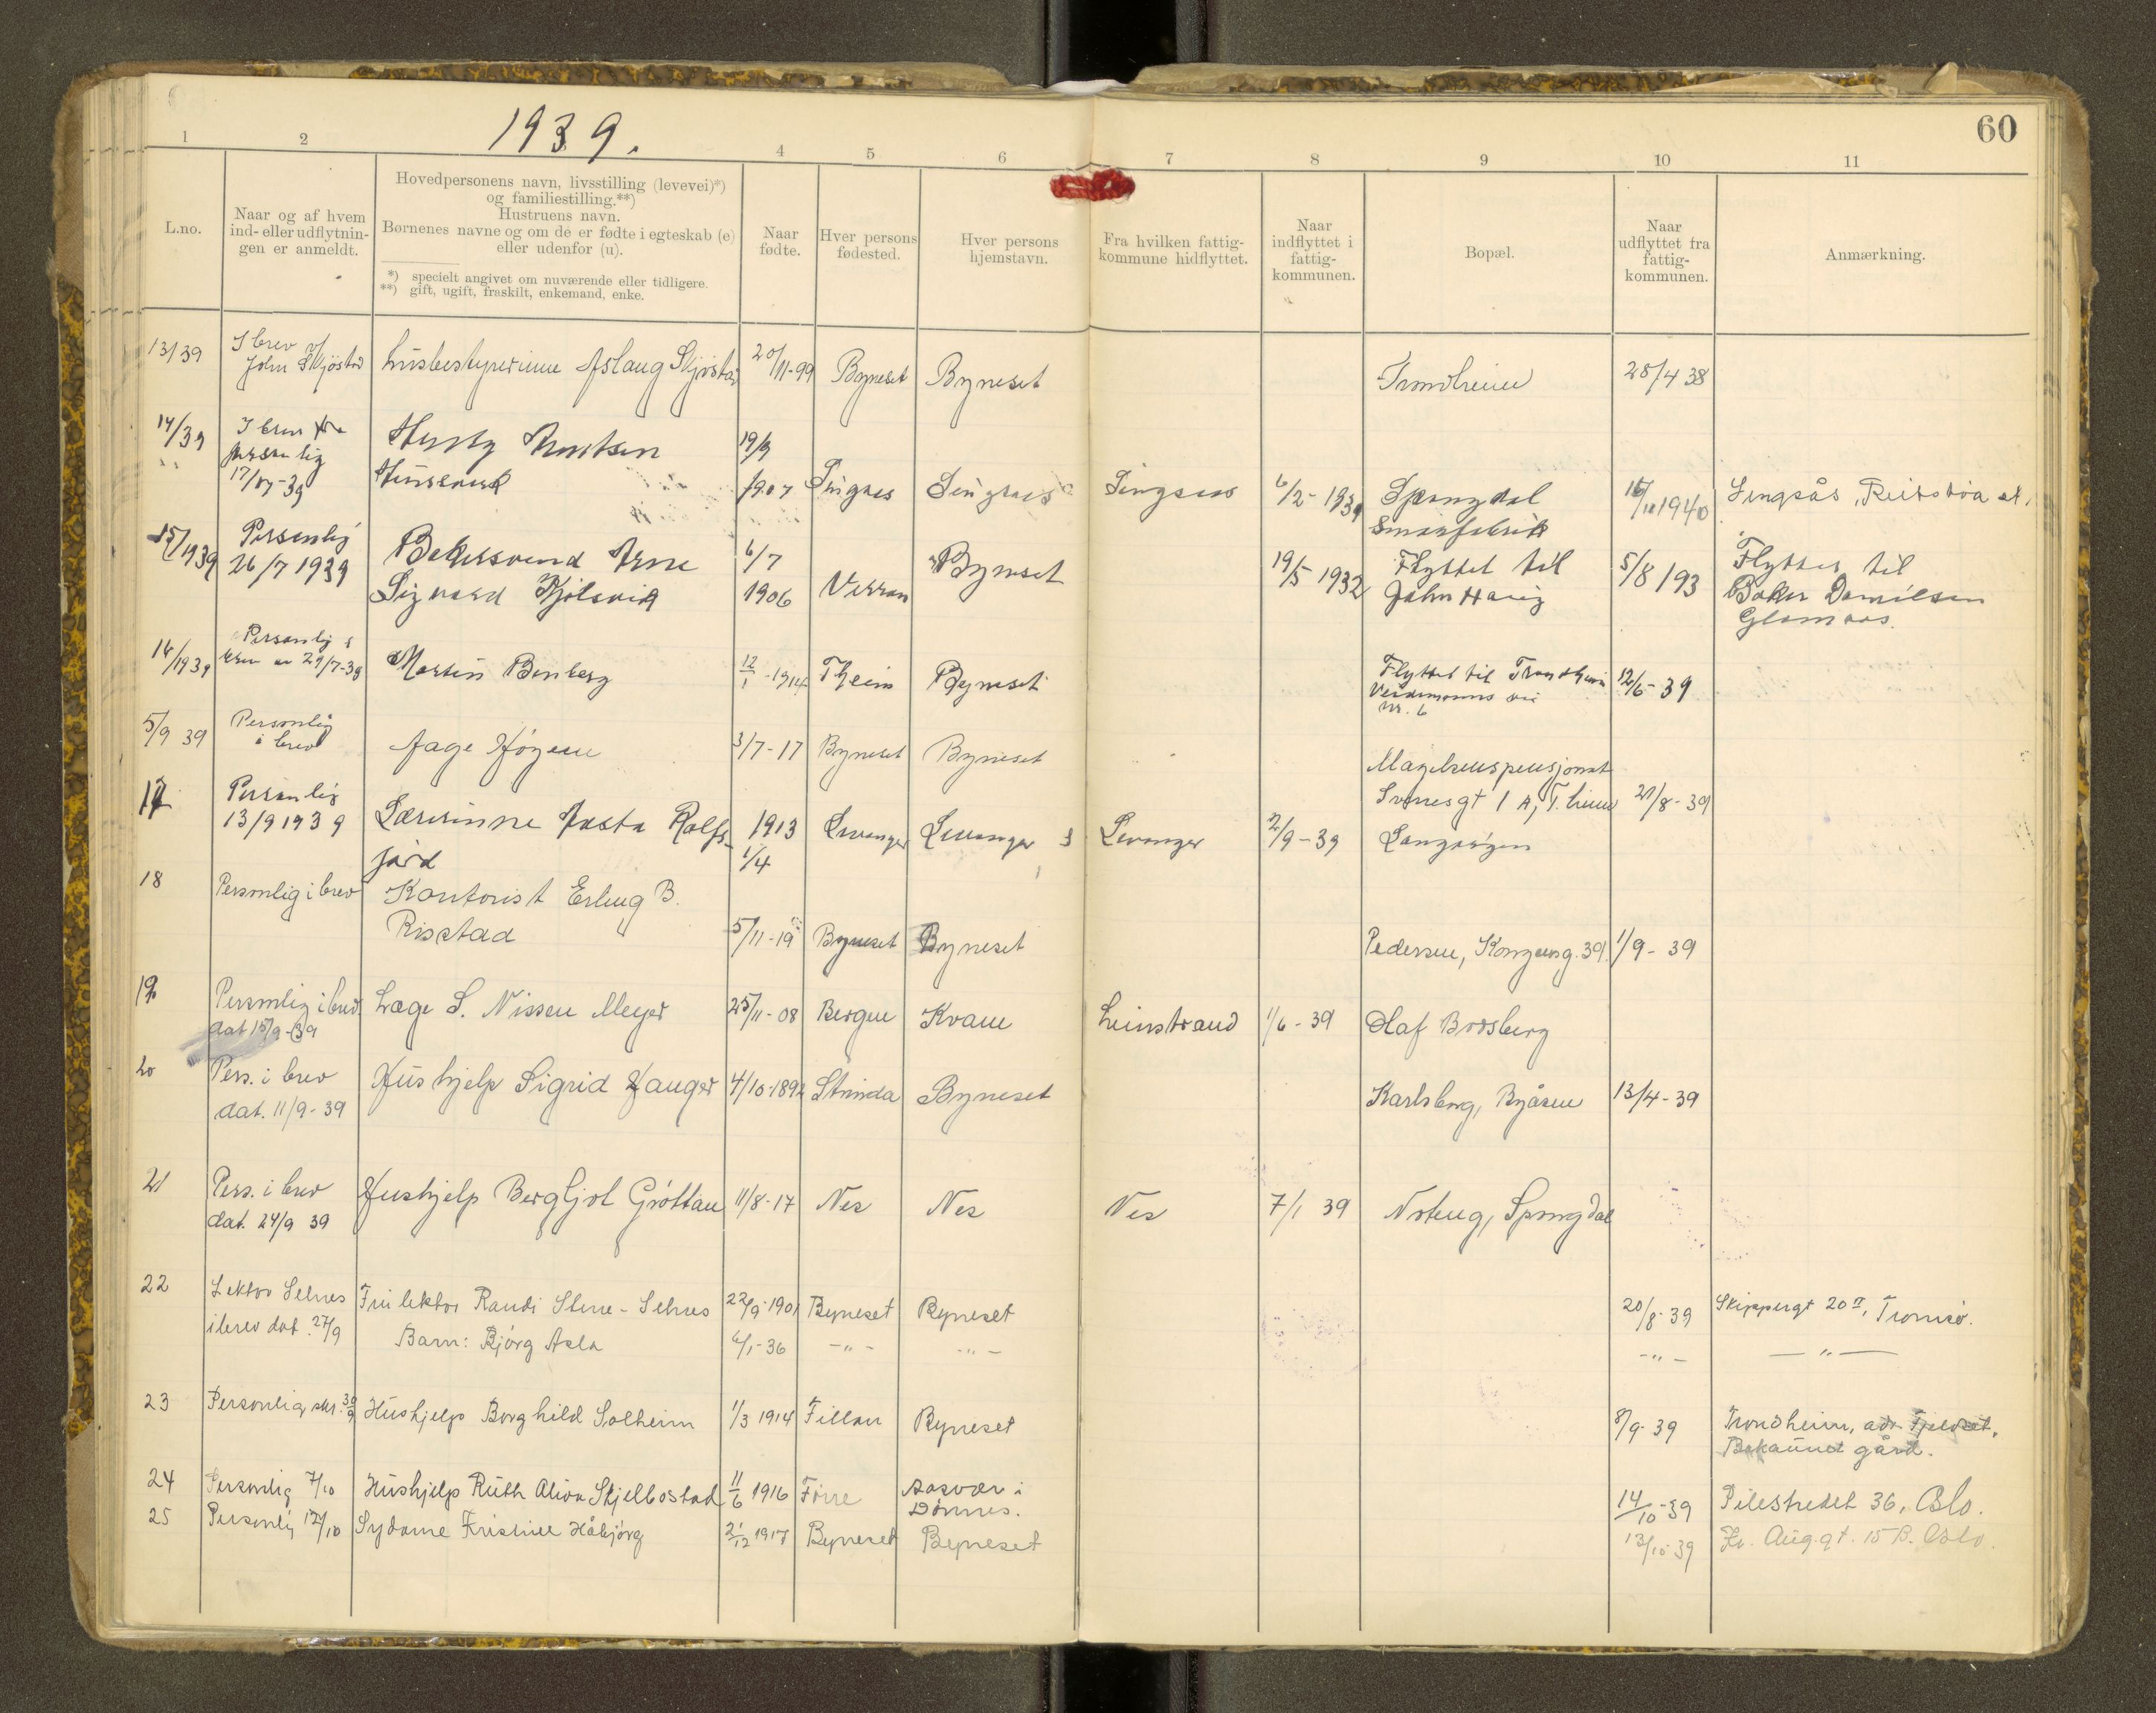 1939.
60
1 2 4 5 6 7 8 9 10 11
L.no.
Naar og af hvem
ind- eller udflytnin-
gen er anmeldt.
Hovedpersonens navn, livsstilling (levevei)*)
og familiestilling.**)
Hustruens navn.
Børnenes navne og om de er fødte i egteskab (e)
eller udenfor (u).
*) specielt angivet om nuværende eller tidligere.
**) gift, ugift, fraskilt, enkemand, enke.
Naar
fødte.
Hver persons
fødested.
Hver persons
hjemstavn.
Fra hvilken fattig-
kommune hidflyttet.
Naar
indflyttet i
fattig-
kommunen.
Bopæl.
Naar
udflyttet fra
fattig-
kommunen.
Anmærkning.
13/39 I brev
John Skjöstad husbestyrerinne Aslaug Skjöstad 20/11-99 Byneset Byneset Trondheim 28/4 38
14/39 I brev
personlig
17/7-39
19/9
1907 Singsaas 6/2-1939
16/10 1940 Singsås
15/1939 Personlig
26/7 1939 Arne
Sigvard 6/7
1906 Verran Byneset 19/5 1932 Flyttet til
John Haug 5/8 193 Flyttet til
Baker Danielsen
Glomaas.
16/1939 Personlig i
brev av 29/7-39 Martin Benberg 12/1-1914 Theim Byneset Flyttet til Trondheim
Veidemanns vei
Nr. 6 12/6-39
5/9 39 Personlig
i brev Aage Höyem 3/7-17 Byneset Byneset Magelsenspensjonat
1 A, T.heim 21/8-39
17 Personlig
13/9 1939 Lærerinne Rolfs-
jord 1913
1/4 Levanger Levanger Levanger 2/9-39
18 Personlig i brev Kontorist Erling B.
Risstad 5/11-19 Byneset Byneset Pedersen, Kongensg. 39. 1/9-39
19 Personlig i brev
dat 15/9-39 Læge S. Nissen Meyer 25/11-08 Bergen Kvam Leinstrand 1/6-39 Olaf Brosberg
20 Pers. i brev
dat. 11/9-39 Hushjelp Sigrid Hauger 4/10-1892 Strinda Byneset Karlsborg, Byåsen 13/4-39
21 Pers. i brev
dat. 24/9 39 Hushjelp Bergljot Gröttan 11/8-17 Nes Nes Nes 7/1 39 Spongdal
22 Lektor Selnes
i brev dat. 27/9 Frü lektor Randi Stene-Selnes 22/9-1901 Byneset Byneset 20/8-39 Skippergt 20 II, Tromsö.
Barn: Björg Asla 6/1-36 -"- -"- -"- -"-
23 Personlig skr. 30/9 Hüshjelp Borghild Solheim 1/3 1914 Fillan Byneset 8/9-39 Trondheim, adr. Fjeldset,
Bakaünet gård.
24 Personlig 7/10 Hüshjelp Rüth Skjelbostad 11/6 1916 Aasvær i
Dönnes. 14/10-39 Pilestredet 36, Oslo.
25 Personlig 12/10 Sydame Kristine Håbjörg 21/12 1917 Byneset Byneset 13/10-39 Kr. Aug.gt. 15 B. Oslo.